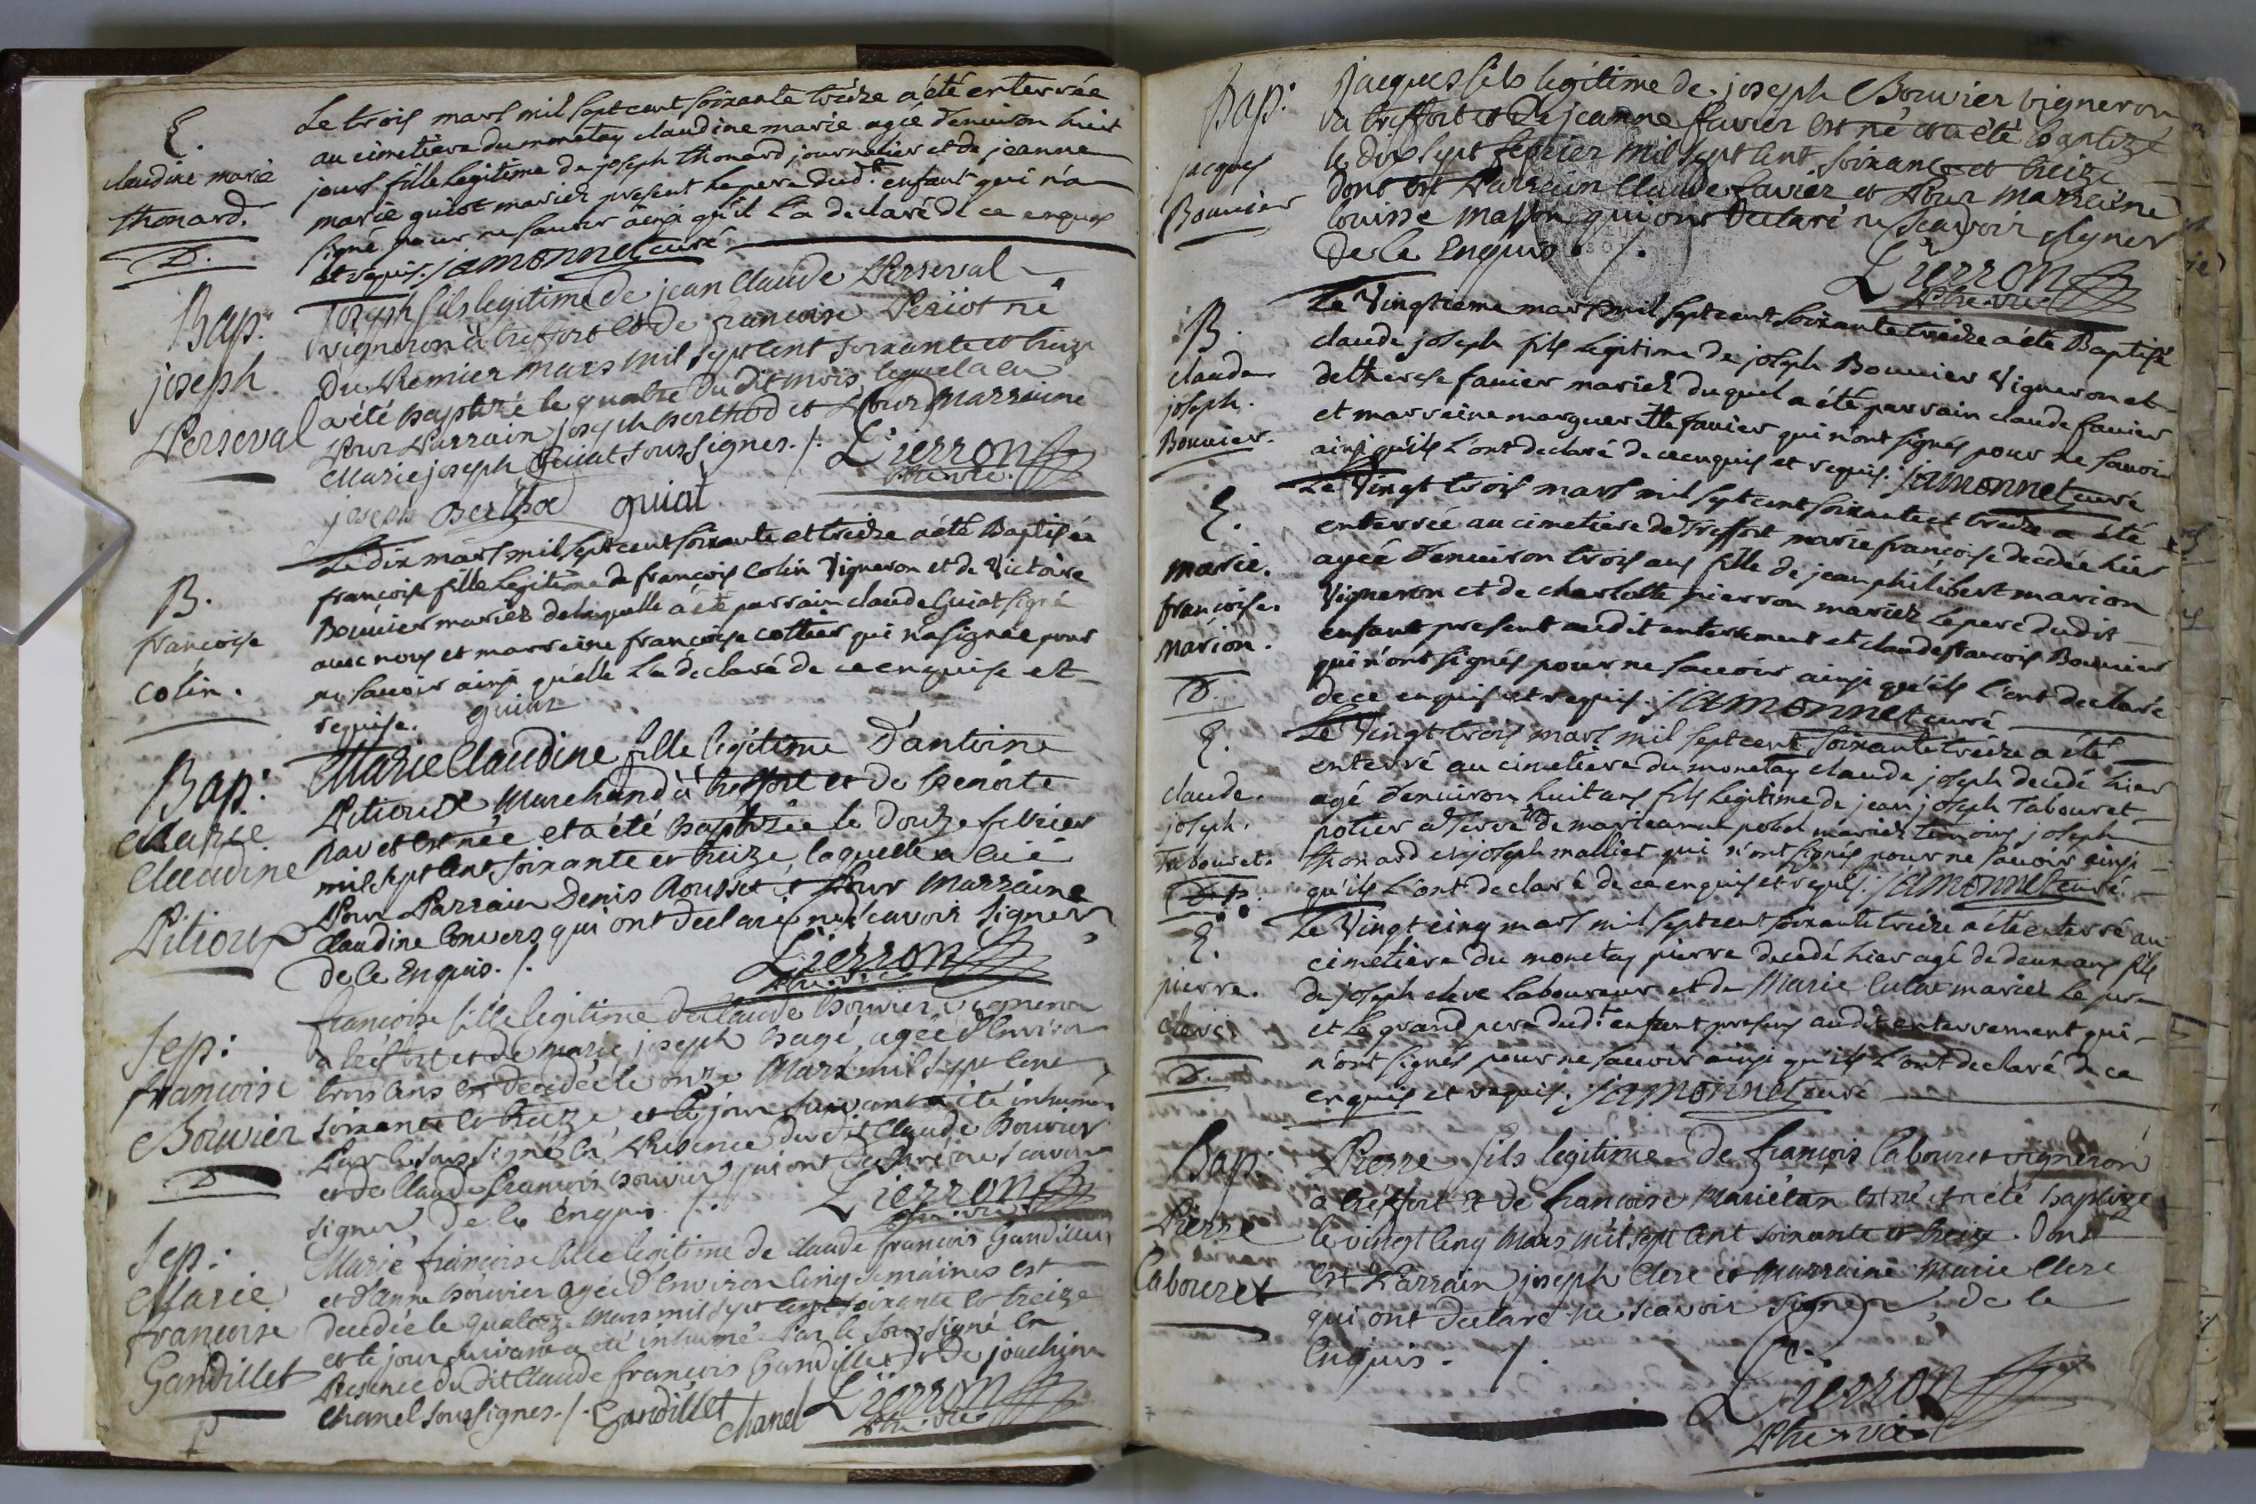 E.
claudine marie
thonard.
D.
Le trois mars mil sept cent soixante treize a été enterrée
au cimetiere du monetay claudine marie agée d'environ huit
jours fille legitime de joseph thonard journalier et de jeanne
marie guiot mariez present le pere dud.t enfant qui n'a
signé pour ne savoir ainsi qu'il l'a declaré de ce enquis
et requis. jamonnet curé
Bap:
joseph
Perseval
joseph fils legitime de jean Claude Perseval
vigneron à treffort et de francoise Periot né
du Premier mars mil sept cent soixante et treize
a été baptizé le quatre du dit mois, lequel a eu
Pour Parrain joseph berthod et Pour Marraine
Marie joseph Guiat soussignes. /. Pierron
Ptre vic.
joseph Berthod guiat
B.
francoise
Colin.
Le dix mars mil sept cent soixante et treize a été Baptisée
francoise fille legitime de françois Colin Vigneron et de Victoire
Bouvier mariez de laquelle a été parrain claude Guiat signé
avec nous et marraine francoise cottier qui n'a signée pour
ne savoir ainsi qu'elle l'a declaré de ce enquise et
requise. guiat
Bap:
Marie
Claudine
Pitioux
Marie Claudine fille legitime d'antoine
Pitioux Marchand à treffort et de benoite
Ravet est née et a été baptizée le douze fevrier
mil sept cent soixante et treize, laquelle a eüe
Pour Parrain Denis Rousset et Pour Marraine
Claudine Convers qui ont declaré ne scavoir signer
de ce Enquis. /.
Pierron
Ptre vic
Sep:
francoise
Bouvier
D
francoise fille legitime de claude Bouvier vigneron
à treffort et de marie joseph bagé, agée d'Environ
trois ans est decedée le onze Mars mil sept cent
soixante et treize, et le jour suivant a été inhumée
Par le soussigné en Presence du dit Claude Bouvier
et de Claude francois bouvier qui ont declaré ne scavoir
signer, de ce enquis. /. Pierron
Ptre vic.
Sep:
Marie
francoise
Gandillet
P
Marie francoise fille legitime de claude francois Gandillet
et d'anne bouvier agée d'environ cinq semaines est
decedée le quatorze mars mil sept cent soixante et treize
et le jour suivant a été inhumé Par le soussigné en
Presence du dit Claude francois Gandillet et de joachim
Chanel soussignes. /. Gandillet Chanel Pierron
Ptre vic
Bap:
jacques
Bouvier
jacques fils legitime de joseph Bouvier vigneron
à treffort et de jeanne favier est né et a été baptizé
le dix sept fevrier mil sept cent soixante et treize
dont est Parrain Claude favier et Pour Marraine
Louisse Masson qui ont declaré ne scavoir signer
de ce Enquis. /.
Pierron
Ptre vic
B.
claude
joseph.
Bouvier.
Le Vingtieme mars mil sept cent soixante treize a été Baptisé
claude joseph fils legitime de joseph Bouvier Vigneron et
de therese favier mariez duquel a été parrain claude favier
et marraine margueritte favier qui n'ont signés pour ne savoir
ainsi qu'ils l'ont declaré de ce enquis et requis. jamonnet curé
E.
marie.
françoise.
Marion.
D.
Le Vingt trois mars mil sept cent soixante et treize a été
enterrée au cimetiere de Treffort marie françoise decedée hier
agée d'environ trois ans fille de jean philibert marion
Vigneron et de charlotte pierron mariez le pere dudit
enfant present audit enterrement et claude francois Bouvier
qui n'ont signés pour ne savoir ainsi qu'ils l'ont declaré
de ce enquis et requis. jamonnet curé
E.
claude.
joseph.
Tabouret.
D.
Le Vingt trois mars mil sept cent soixante treize a été
enterré au cimetiere du monetay claude joseph decedé hier
agé d'environ huit ans fils legitime de jean joseph Tabouret
potier à Terre et de marie anne pobel mariez temoins joseph
thonard et joseph malliet qui n'ont signés pour ne savoir ainsi
qu'ils l'ont declaré de ce enquis et requis. jamonnet curé
E.
pierre.
cleve.
D.
Le Vingt cinq mars mil sept cent soixante treize a été enterré au
cimetiere du monetay pierre decedé hier agé de deux ans fils
de joseph cleve Laboureur et de Marie Culat mariez le pere
et le grand pere dud.t enfant presens audit enterrement qui
n'ont signés pour ne savoir ainsi qu'ils l'ont declaré de ce
enquis et requis. jamonnet curé
Bap:
Pierre
Cabouret
Pierre fils legitime de françois Cabouret vigneron
à treffort et de francoise Mariétan est né et a été baptizé
le vingt cinq Mars mil sept cent soixante et treize. Dont
est Parrain joseph Clerc et Marraine Marie Clerc
qui ont declaré ne scavoir signer, de ce
Enquis. /.
Pierron
Ptre vic